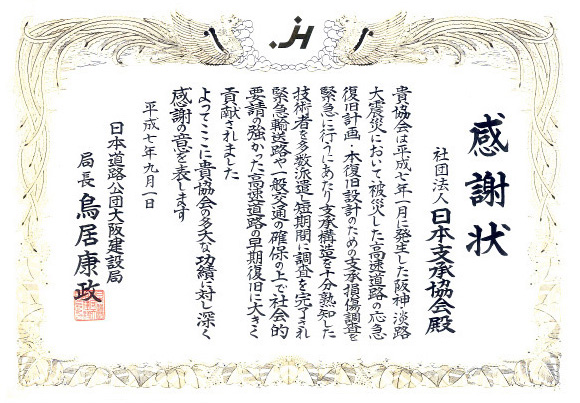 JH
感謝状
社団法人日本支承協会殿
貴協会は平成七年一月に発生した阪神・淡路
大震災において、被災した高速道路の応急
復旧計画・本復旧設計のための支承損傷調査を
緊急に行うにあたり支承構造を十分熟知した
技術者を多数派遣し短期間に調査を完了され
緊急輸送路や一般交通の確保の上で社会的
要請の強かった高速道路の早期復旧に大きく
貢献されました
よってここに貴協会の多大な功績に対し深く
感謝の意を表します
平成七年九月一日
日本道路公団大阪建設局
局長 鳥居康政